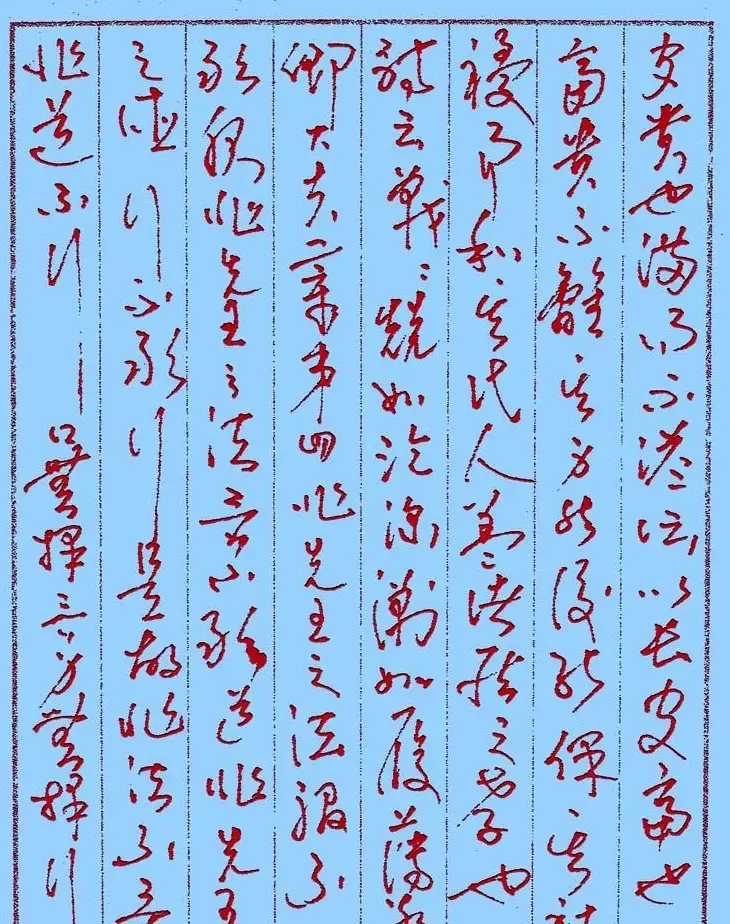 守貴也滿而不溢所以長守富也
富貴不離其身然後能保其社
稷而和其民人蓋諸侯之孝也
詩云戰〻兢如臨深淵如履薄
卿大夫章第四非先王之法服不
敢服非先王之法言不敢道非先王
之德行不敢行是故非法不言
非道不行口無擇言身無擇行